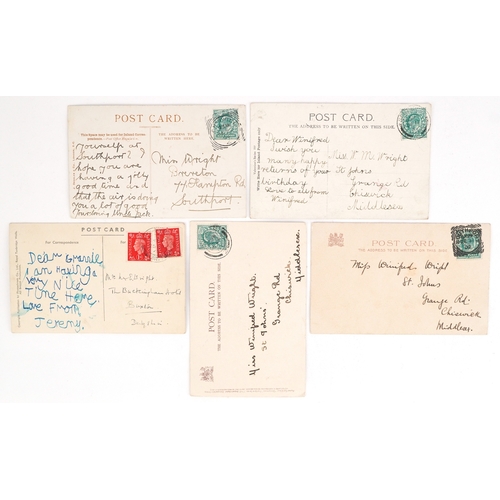 POST CARD.
THE ADDRESS TO BE WRITTEN ON THIS SIDE.
Yourself at
Southport? I
hope you are
having a jolly
good time and
that the air is doing
you a lot of good
Uncle Jack.
Miss Wright
Hampton Rd
Southport.
POST CARD.
THE ADDRESS TO BE WRITTEN ON THIS SIDE.
Dear Winifred
I wish you
many happy
returns of your
birthday
Love to
Winifred
Miss W M Wright
St Johns
Grange Rd
Chiswick
Middlesex
POST CARD
For Correspondence
Dear Grannie
I am Having a
very Nice
Time Here.
Love From
Jeremy.
Wright
The Buckingham Hotel
Buxton
Derbyshire
POST CARD.
THE ADDRESS TO BE WRITTEN ON THIS SIDE.
Miss Winifred Wright.
St Johns'
Grange Rd
Chiswick.
Middlesex.
POST CARD.
THE ADDRESS TO BE WRITTEN ON THIS SIDE.
Miss Winifred Wright
St. Johns
Grange Rd.
Chiswick
Middlesex.